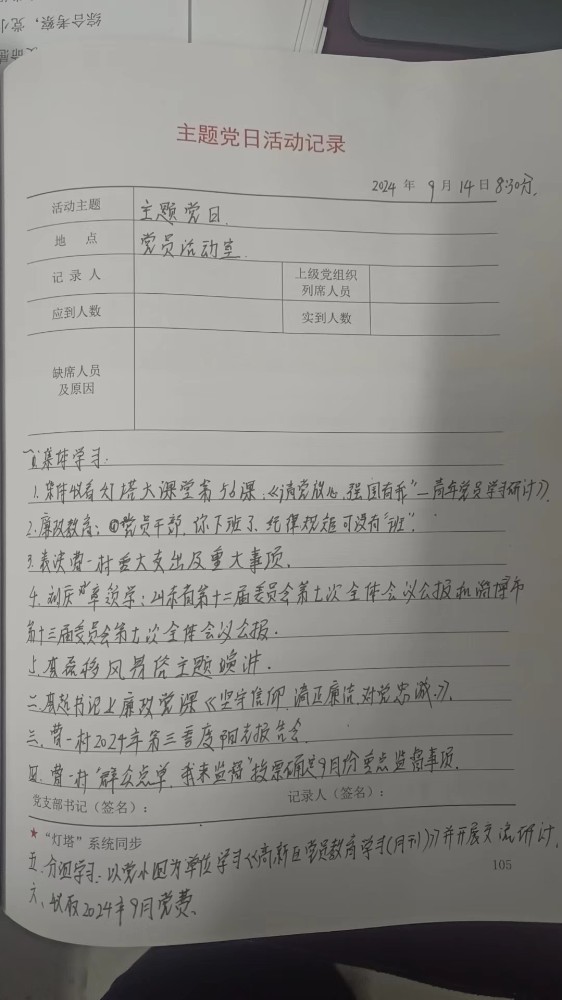 综合考察，党小
主题党日活动记录
2024 年 9 月 14 日 8:30分.
活动主题 主题党日.
地 点 党员活动室.
记 录 人 上级党组织
列席人员
应到人数 实到人数
缺席人员
及原因
一、集体学习.
1.集体收看灯塔大课堂第56课:《"请党放心,强国有我"—青年党员学习研讨》.
2.廉政教育: 党员干部,你下班了,纪律规矩可没有"班".
3.表决曹一村重大支出及重大事项.
4. 领学:山东省第十二届委员会第七次全体会议公报和淄博市
第十三届委员会第七次全体会议公报.
5. 移风易俗主题演讲.
二. 书记上廉政党课《坚守信仰,清正廉洁,对党忠诚.》.
三.曹一村2024年第三季度阳光报告会.
四.曹一村"群众点单,我来监督"投票确定9月份重点监督事项.
党支部书记（签名）： 记录人（签名）：
★ “灯塔”系统同步
五.分组学习.以党小组为单位学习《高新区党员教育学习(月刊)》并开展交流研讨.
105
六、收取2024年9月党费.